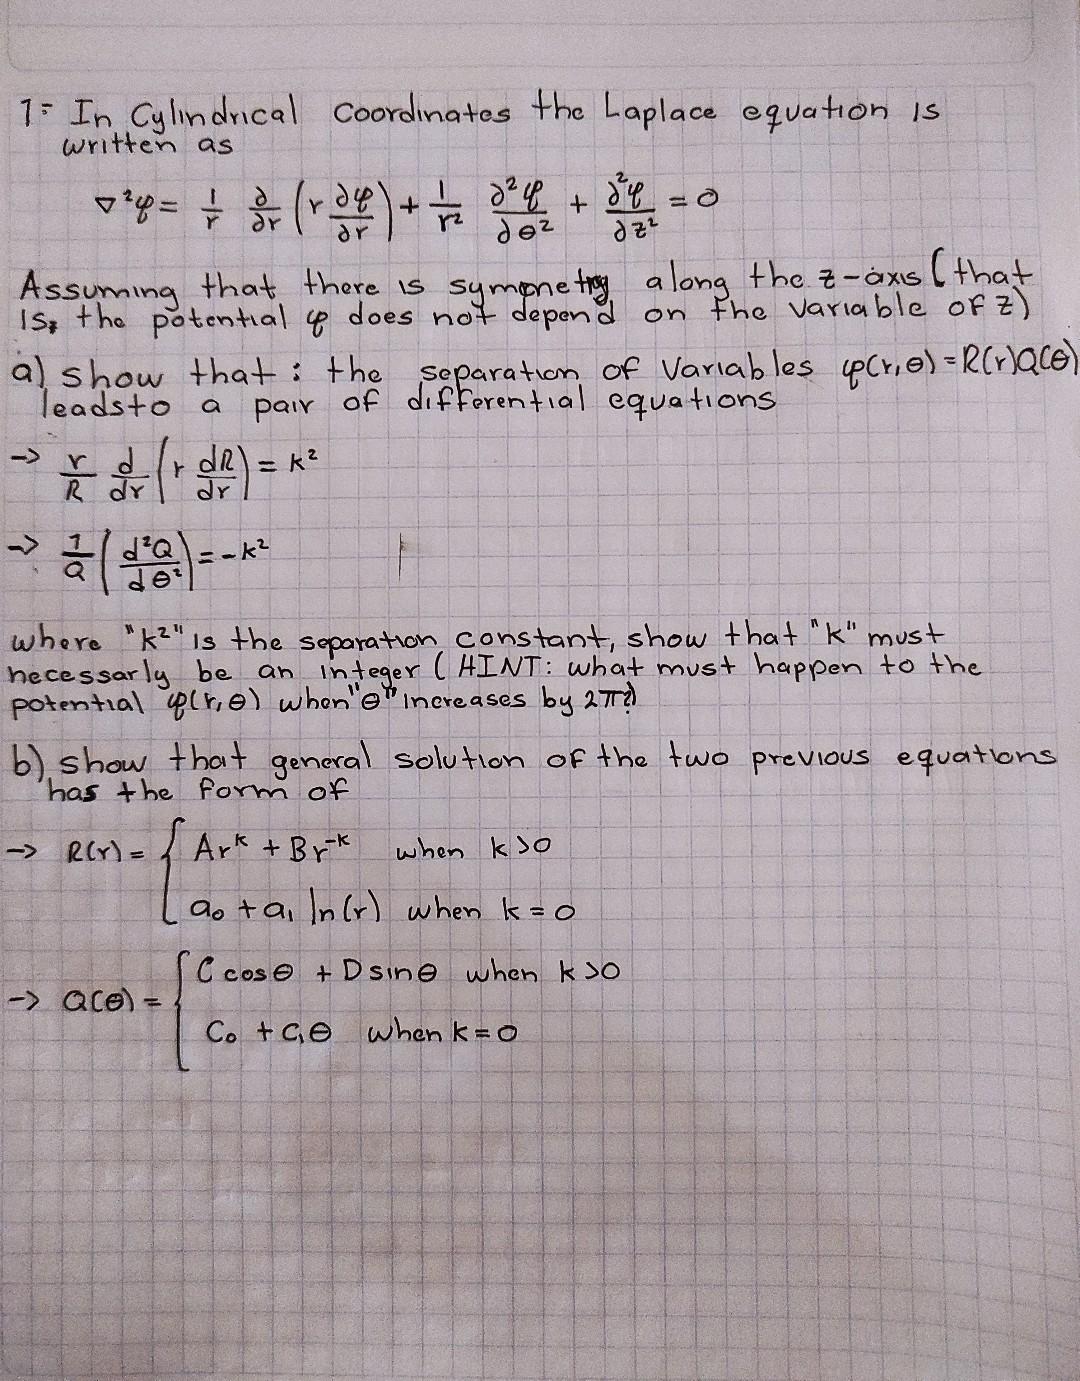 1= In Cylindrical Coordinates the Laplace equation is
written as
∇²φ = 1/r ∂/∂r (r ∂φ/∂r) + 1/r² ∂²φ/∂θ² + ∂²φ/∂z² = 0
Assuming that there is symmetry along the z-axis (that
is, the potential φ does not depend on the variable of z)
a) show that : the separation of variables φ(r,θ) = R(r)Q(θ)
leads to a pair of differential equations
→ r/R d/dr (r dR/dr) = k²
→ 1/Q (d²Q/dθ²) = -k²
where "k²" is the separation constant, show that "k" must
necessarly be an integer ( HINT: what must happen to the
potential φ(r,θ) when "θ" increases by 2π?)
b) show that general solution of the two previous equations
has the form of
→ R(r) = { Ar^k + Br^-k when k>0
a₀ + a₁ ln(r) when k = 0
→ Q(θ) = { C cosθ + D sinθ when k>0
C₀ + C₁θ when k = 0